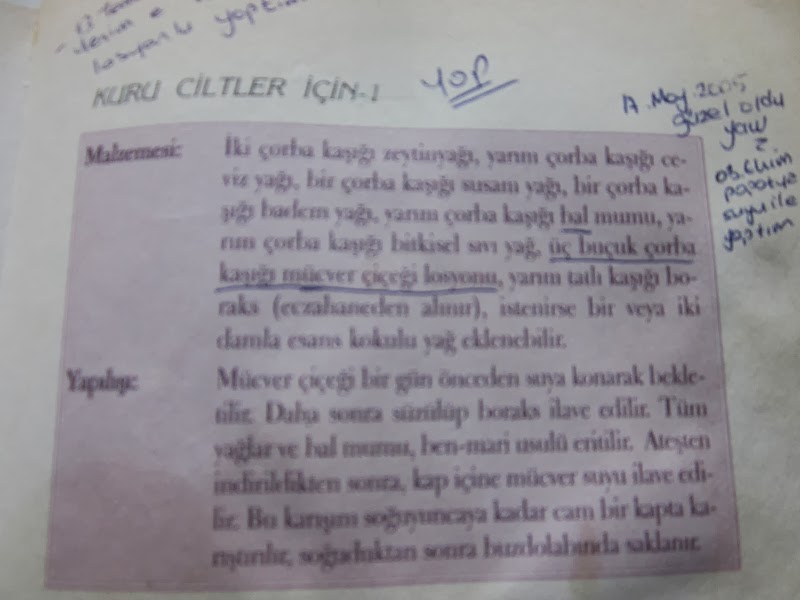 yoptım
KURU CİLTLER İÇİN-1
YOP
17. May. 2005
güzel oldu
yaw
papatya
suyu ile
yaptım
Malzemesi: İki çorba kaşığı zeytinyağı, yarım çorba kaşığı ce-
viz yağı, bir çorba kaşığı susam yağı, bir çorba ka-
şığı badem yağı, yarım çorba kaşığı bal mumu, ya-
rım çorba kaşığı bitkisel sıvı yağ, üç buçuk çorba
kaşığı mücver çiçeği losyonu, yarım tatlı kaşığı bo-
raks (eczahaneden alınır), istenirse bir veya iki
damla esans kokulu yağ eklenebilir.
Yapılışı: Mücver çiçeği bir gün önceden suya konarak bekle-
tilir. Daha sonra süzülüp boraks ilave edilir. Tüm
yağlar ve bal mumu, ben-mari usulü eritilir. Ateşten
indirildikten sonra, kap içine mücver suyu ilave edi-
lir. Bu karışım soğuyuncaya kadar cam bir kapta ka-
rıştırılır, soğuduktan sonra buzdolabında saklanır.